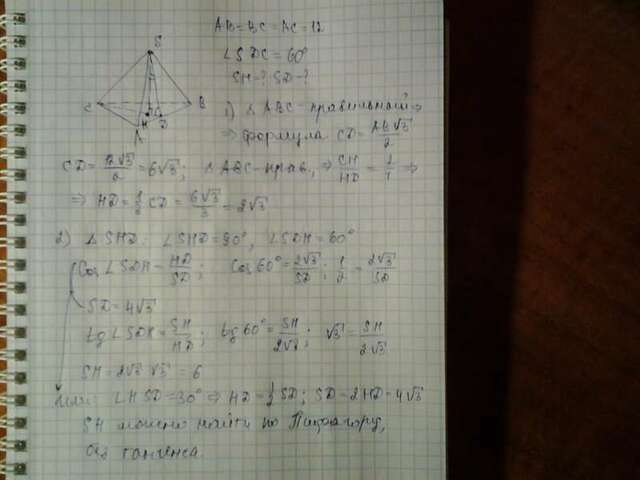 AB=BC=AC=12
∠SDC=60°
SH-? SD-?
S
C
B
A
H
D
1) △ABC-правильный ⇒
⇒ формула CD=AB√3/2
CD=12√3/2=6√3; △ABC-прав, ⇒ CH/HD=2/1 ⇒
⇒ HD=1/3 CD=6√3/3=2√3
2) △SHD: ∠SHD=90°, ∠SDH=60°
Cos∠SDH=HD/SD; Cos60°=2√3/SD; 1/2=2√3/SD
SD=4√3
tg∠SDH=SH/HD; tg60°=SH/2√3; √3=SH/2√3
SH=2√3·√3=6
или: ∠HSD=30° ⇒ HD=1/2 SD; SD=2HD=4√3
SH можно найти по Пифагору,
без тангенса.